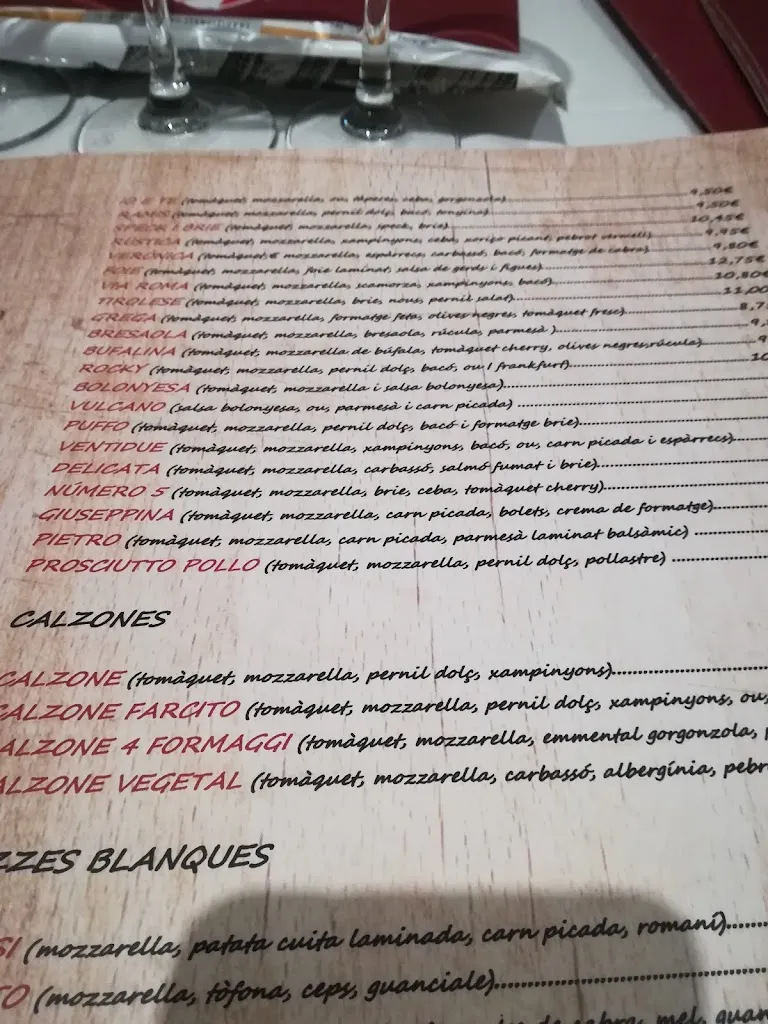 IO E TE (tomàquet, mozzarella, ou, tàperes, ceba, gorgonzola) 9,50€
RAMIS (tomàquet, mozzarella, pernil dolç, bacó, tonyina) 9,50€
SPECK I BRIE (tomàquet, mozzarella, speck, brie) 10,45€
RÚSTICA (tomàquet, mozzarella, xampinyons, ceba, xoriço picant, pebrot vermell) 9,95€
VERÓNICA (tomàquet, mozzarella, espàrrecs, carbassó, bacó, formatge de cabra) 9,80€
FOIE (tomàquet, mozzarella, foie laminat, salsa de gerds i figues) 12,75€
VIA ROMA (tomàquet, mozzarella, scamorza, xampinyons, bacó) 10,80€
TIROLESE (tomàquet, mozzarella, brie, nous, pernil salat) 11,00
GREGA (tomàquet, mozzarella, formatge feta, olives negres, tomàquet fresc) 8,7
BRESAOLA (tomàquet, mozzarella, bresaola, rúcula, parmesà ) 9,
BUFALINA (tomàquet, mozzarella de búfala, tomàquet cherry, olives negres,rúcula) 9
ROCKY (tomàquet, mozzarella, pernil dolç, bacó, ou i frankfurt) 10
BOLONYESA (tomàquet, mozzarella i salsa bolonyesa)
VULCANO (salsa bolonyesa, ou, parmesà i carn picada)
PUFFO (tomàquet, mozzarella, pernil dolç, bacó i formatge brie)
VENTIDUE (tomàquet, mozzarella, xampinyons, bacó, ou, carn picada i espàrrecs)
DELICATA (tomàquet, mozzarella, carbassó, salmó fumat i brie)
NÚMERO 5 (tomàquet, mozzarella, brie, ceba, tomàquet cherry)
GIUSEPPINA (tomàquet, mozzarella, carn picada, bolets, crema de formatge)
PIETRO (tomàquet, mozzarella, carn picada, parmesà laminat balsàmic)
PROSCIUTTO POLLO (tomàquet, mozzarella, pernil dolç, pollastre)
CALZONES
CALZONE (tomàquet, mozzarella, pernil dolç, xampinyons)
CALZONE FARCITO (tomàquet, mozzarella, pernil dolç, xampinyons, ou,
ALZONE 4 FORMAGGI (tomàquet, mozzarella, emmental gorgonzola,
ALZONE VEGETAL (tomàquet, mozzarella, carbassó, albergínia, pebr
ZZES BLANQUES
SI (mozzarella, patata cuita laminada, carn picada, romaní)
TO (mozzarella, tòfona, ceps, guanciale)
de cabra, mel, guan